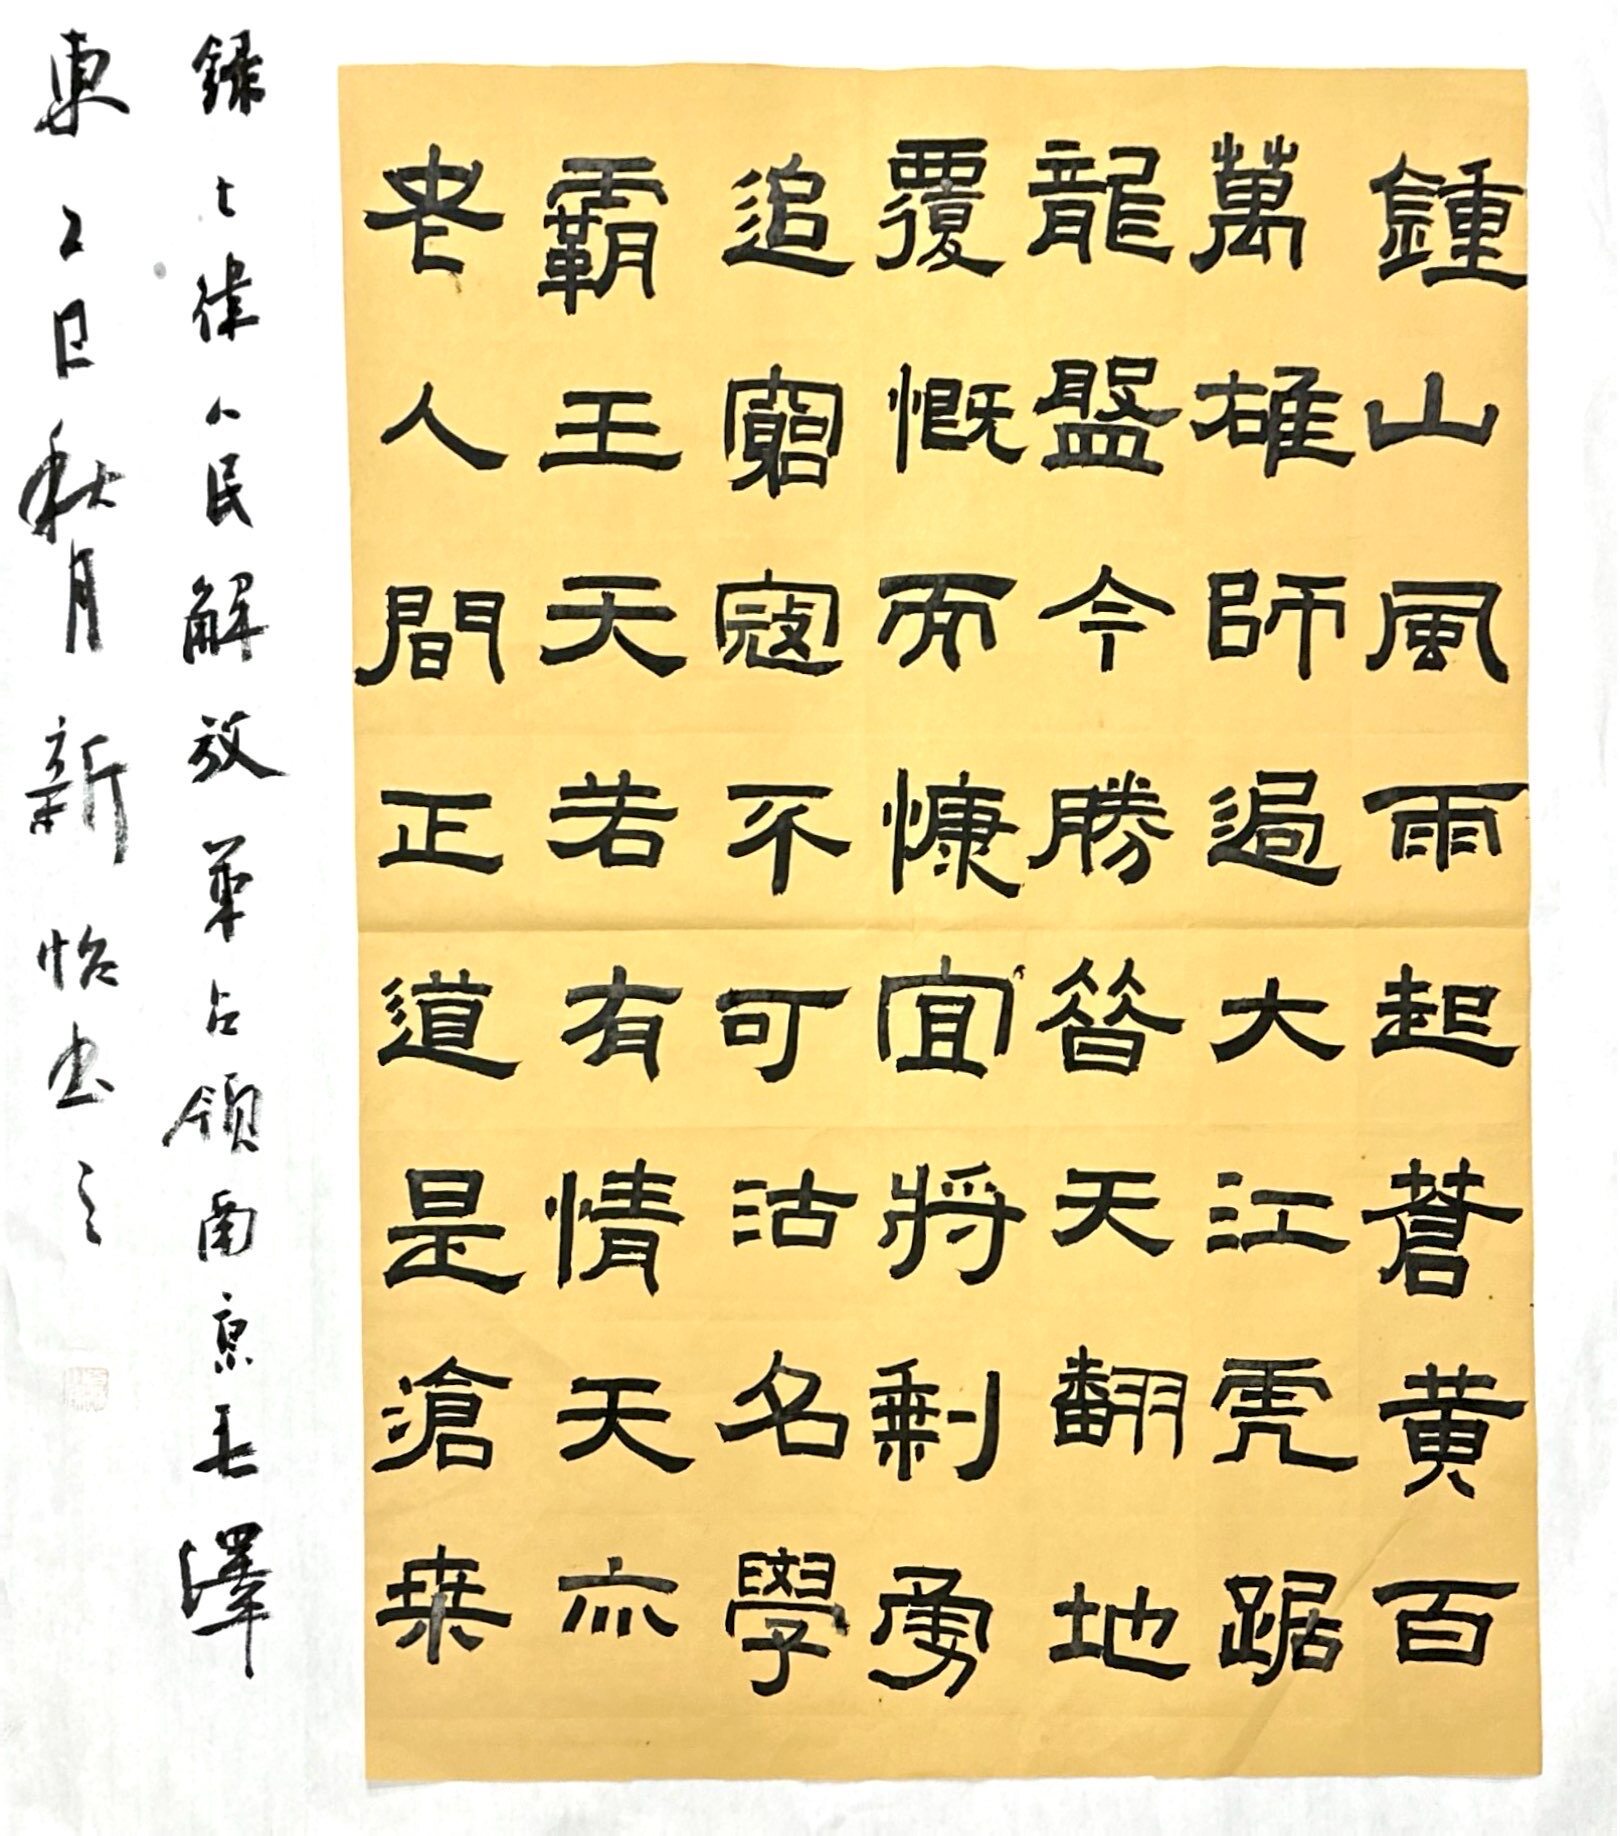 鍾山風雨起蒼黄百
萬雄師過大江虎踞
龍盤今勝昔天翻地
覆慨而慷宜將剩勇
追窮寇不可沽名學
霸王天若有情天亦
老人間正道是滄桑
錄七律人民解放軍占領南京毛澤
東乙巳秋月新怡书之